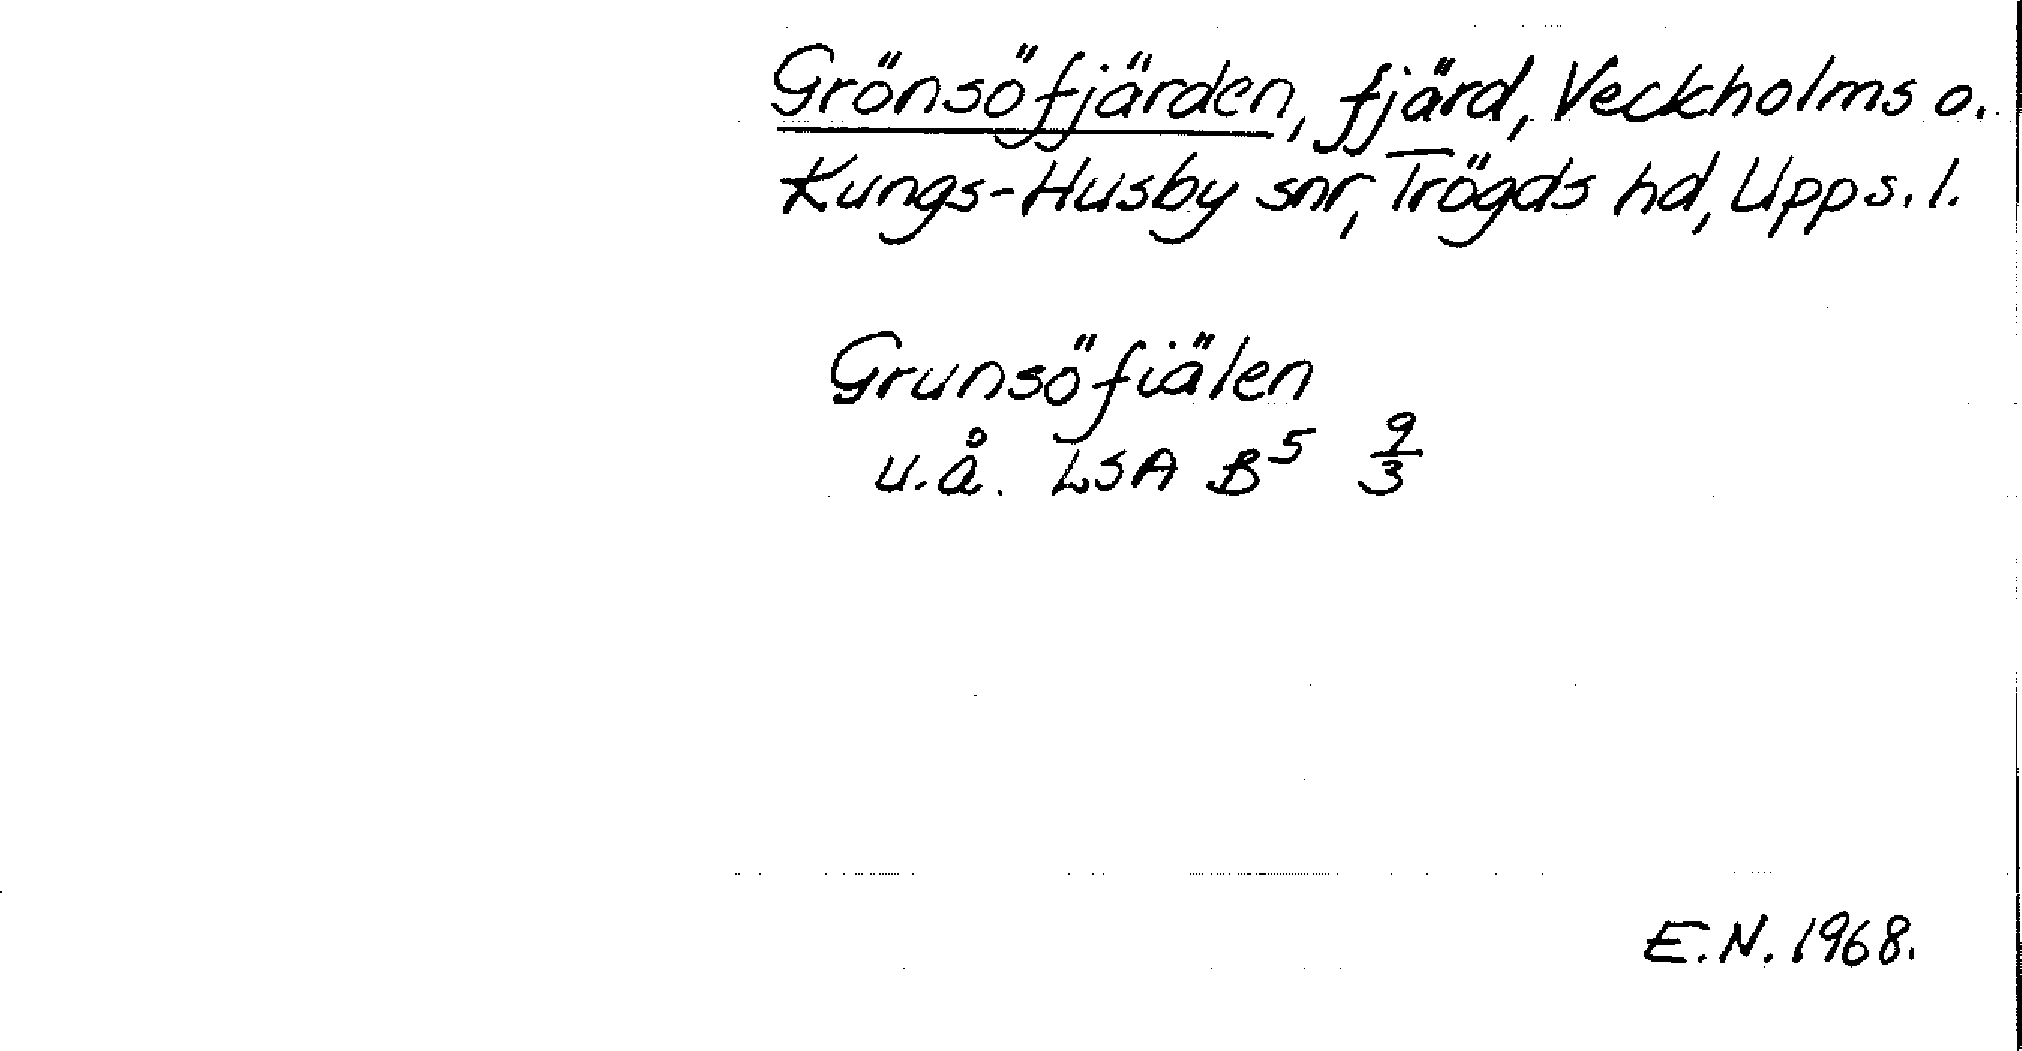 Grönsöfjärden, fjärd, Veckholms o.
Kungs-Husby snr, Trögds hd, Upps. l.
Grunsöfiälen
u.å. LSA B⁵ 9/3
E.N. 1968.